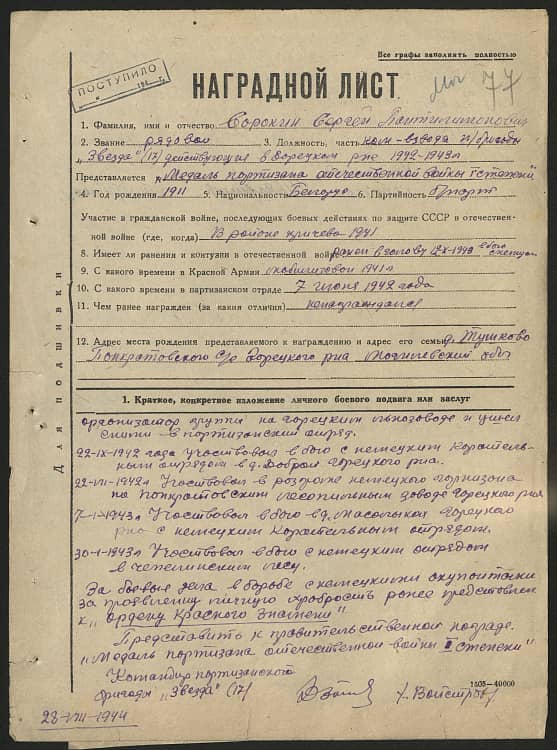 Все графы заполнять полностью
ПОСТУПИЛО
194 г.
НАГРАДНОЙ ЛИСТ
77
1. Фамилия, имя и отчество Сорокин Сергей Пантилимонович
2. Звание рядовой 3. Должность, часть ком-взвода п/бригады
"Звезда" (17) действующия в Горецком р-не 1942-1943г
Представляется к "Медаль партизана отечественной войны I степени"
4. Год рождения 1911 5. Национальность Белорус 6. Партийность б/парт
Участие в гражданской войне, последующих боевых действиях по защите СССР в отечествен-
ной войне (где, когда) В районе Кричева 1941
8. Имеет ли ранения и контузии в отечественной войне ранен в голову IX-1942 в бою
9. С какого времени в Красной Армии мобилизован 1941г
10. С какого времени в партизанском отряде 7 июня 1942 года
11. Чем ранее награжден (за какия отличия) ненаграждался
12. Адрес места рождения представляемого к награждению и адрес его семьи д. Тушково
Панкратовского с/с Горецкого р-на Могилевской обл
Для подшивки
1. Краткое, конкретное изложение личного боевого подвига или заслуг
организатор группы на Горецким льнозаводе и
с ними в партизанский отряд.
22-IX-1942 года Участвовал в бою с немецким Каратель-
ным отрядом в д. Доброй Горецкого р-на.
22-VII-1942г Участвовал в разгроме немецкого гарнизона
на Панкратовским лесопильным заводе Горецкого р-на
7-I-1943г Участвовал в бою в д. Масалыках Горецкаго
р-на с немецким Карательным отрядом.
30-I-1943г Участвовал в бою с немецким отрядом
в лесу.
За боевые дела в борьбе с немецкими окупантами
за проявленну личную хробрость ранее представлен
к "ордену Красного Знамени"
Представить к правительственной награде.
"Медаль партизана отечественной войны I степени"
Командир партизанской
бригады "Звезда" (17)
1505—40000
28-VIII-1944